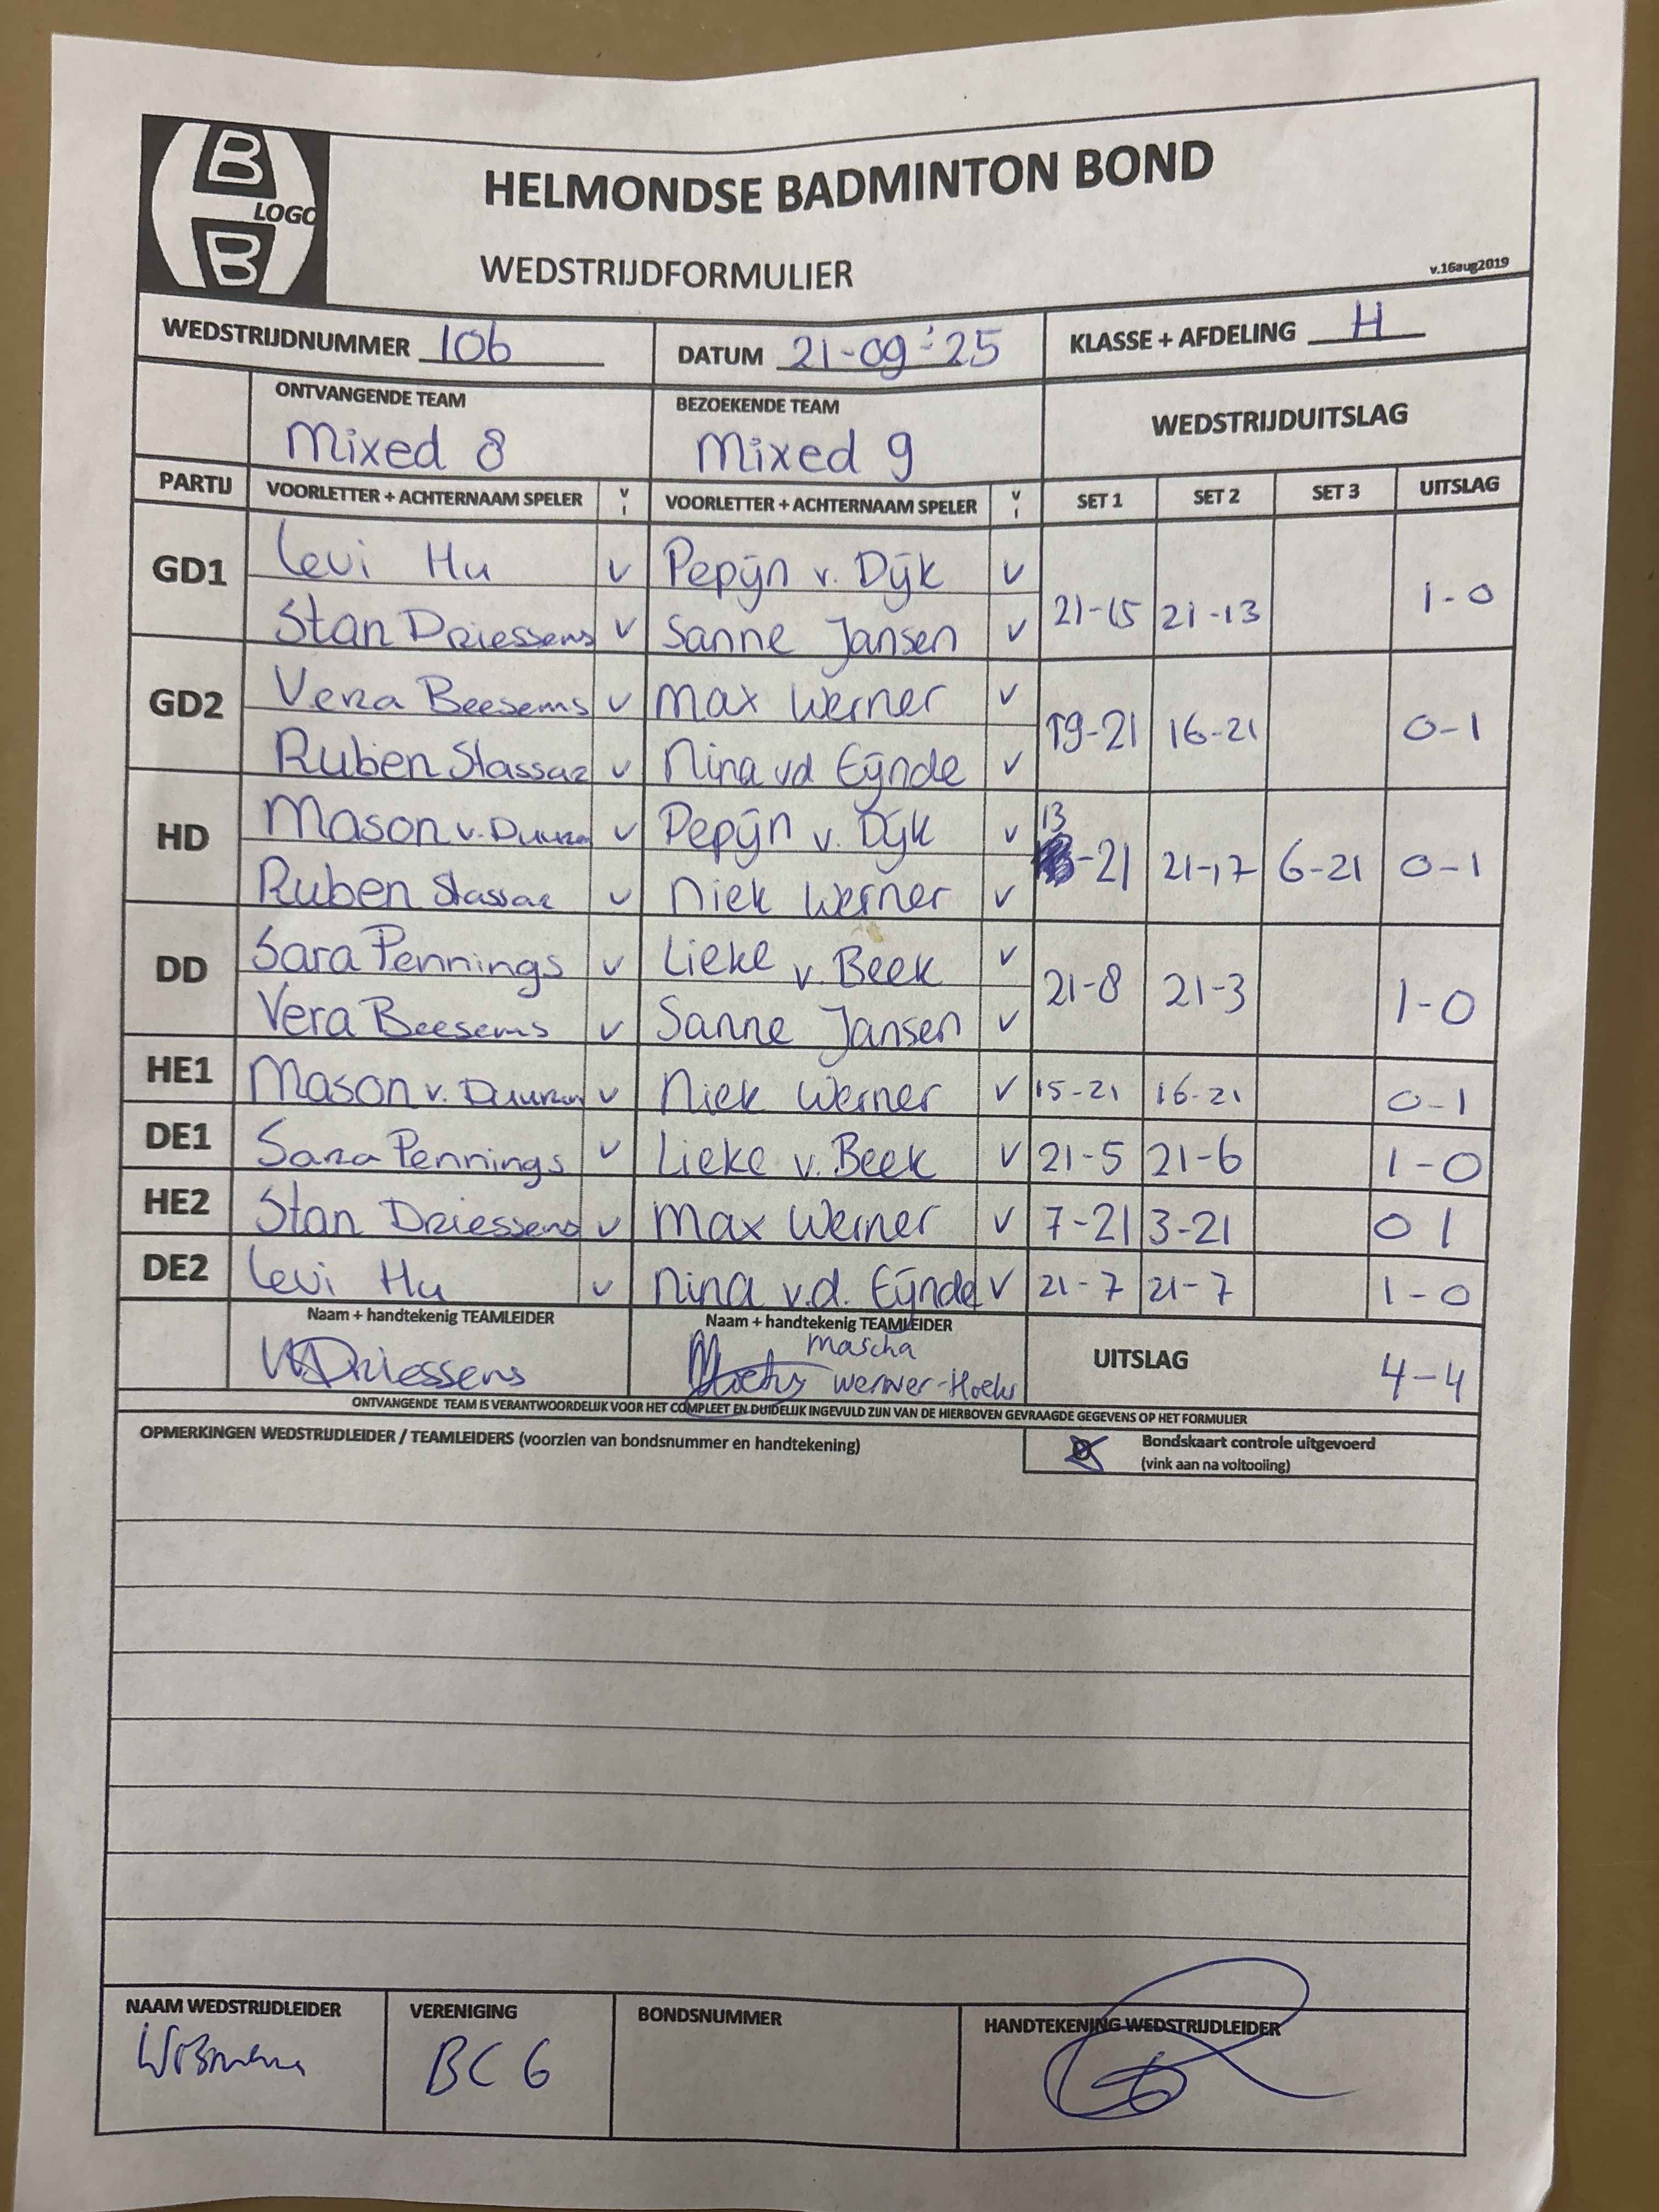 B
LOGO
B
HELMONDSE BADMINTON BOND
WEDSTRIJDFORMULIER
v.16aug2019
WEDSTRIJDNUMMER 106
DATUM 21-09-'25
KLASSE + AFDELING H
ONTVANGENDE TEAM
Mixed 8
BEZOEKENDE TEAM
Mixed 9
WEDSTRIJDUITSLAG
PARTIJ VOORLETTER + ACHTERNAAM SPELER V I VOORLETTER + ACHTERNAAM SPELER V I SET 1 SET 2 SET 3 UITSLAG
GD1 Levi Hu v Pepijn v. Dijk v
Stan Driessens v Sanne Jansen v 21-15 21-13 1-0
GD2 Vera Beesems v Max Werner v
Ruben Stassar v Nina vd Eijnde v 19-21 16-21 0-1
HD Mason v. Duuren v Pepijn v. Dijk v 13
Ruben Stassar v Niek Werner v -21 21-17 6-21 0-1
DD Sara Pennings v Lieke v. Beek v
Vera Beesems v Sanne Jansen v 21-8 21-3 1-0
HE1 Mason v. Duuren v Niek Werner v 15-21 16-21 0-1
DE1 Sara Pennings v Lieke v. Beek v 21-5 21-6 1-0
HE2 Stan Driessens v Max Werner v 7-21 3-21 0 1
DE2 Levi Hu v Nina v.d. Eijnde v 21-7 21-7 1-0
Naam + handtekenig TEAMLEIDER
Driessens
Naam + handtekenig TEAMLEIDER
Mascha
Werner-Hoeks
UITSLAG 4-4
ONTVANGENDE TEAM IS VERANTWOORDELIJK VOOR HET COMPLEET EN DUIDELIJK INGEVULD ZIJN VAN DE HIERBOVEN GEVRAAGDE GEGEVENS OP HET FORMULIER
OPMERKINGEN WEDSTRIJDLEIDER / TEAMLEIDERS (voorzien van bondsnummer en handtekening)
Bondskaart controle uitgevoerd
(vink aan na voltooiing)
NAAM WEDSTRIJDLEIDER
VERENIGING
BC G
BONDSNUMMER
HANDTEKENING WEDSTRIJDLEIDER